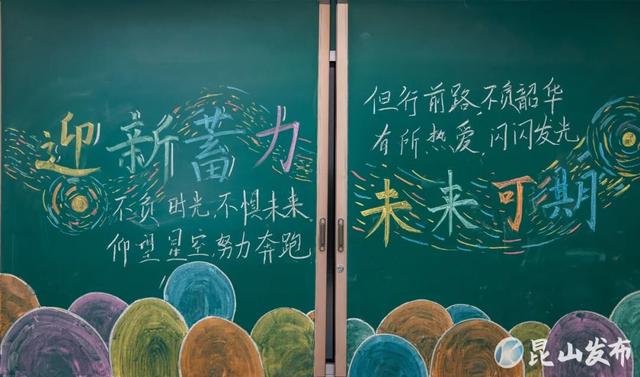 迎新蓄力
不负时光,不惧未来,
仰望星空,努力奔跑
但行前路,不负韶华
有所热爱,闪闪发光
未来可期
昆山发布